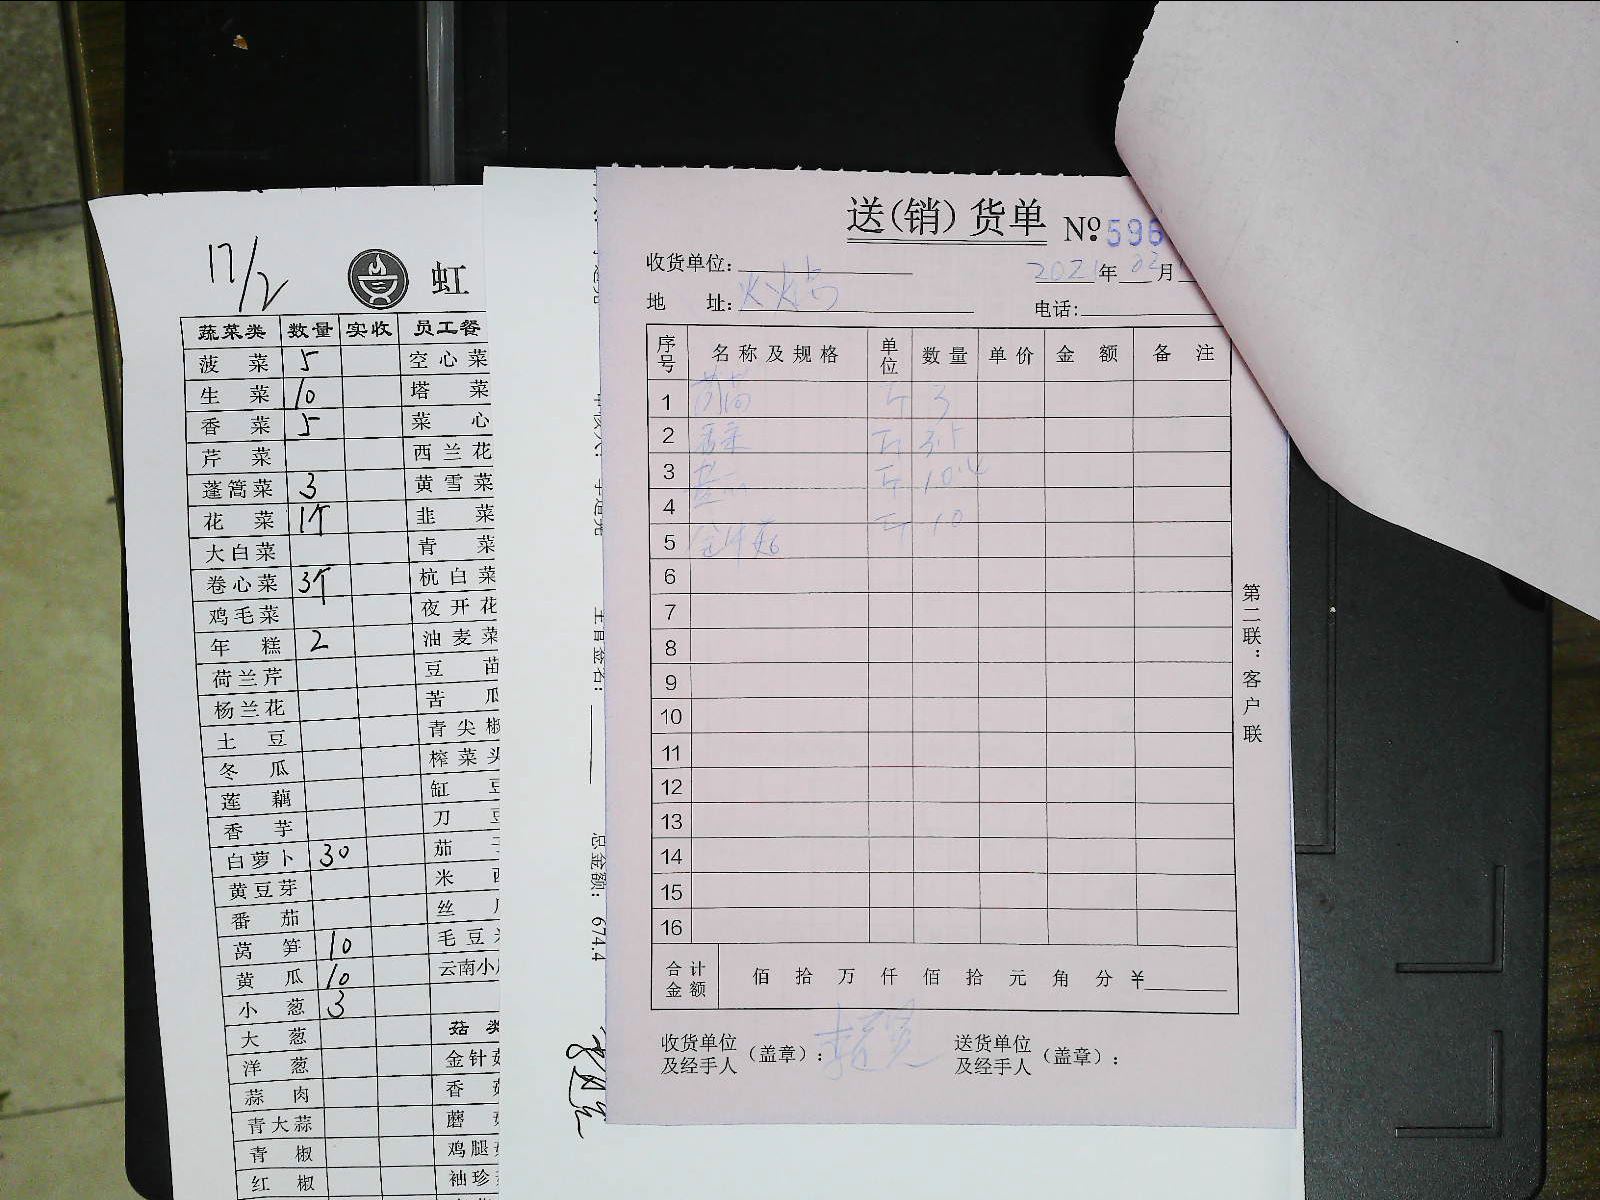 17/2
虹
蔬菜类 数量 实收 员工餐
菠菜 5 空心菜
生菜 10 塔菜
香菜 5 菜心
芹菜 西兰花
蓬蒿菜 3 黄雪菜
花菜 1个 韭菜
大白菜 青菜
卷心菜 3个 杭白菜
鸡毛菜 夜开花
年糕 2 油麦菜
荷兰芹 豆苗
杨兰花 苦瓜
土豆 青尖椒
冬瓜 榨菜头
莲藕 缸豆
香芋 刀豆
白萝卜 30 茄
黄豆芽 米
番茄 丝
莴笋 10 毛豆
黄瓜 10 云南小
小葱 3
大葱 菇类
洋葱 金针菇
蒜肉 香菇
青大蒜 蘑菇
青椒 鸡腿
红椒 袖珍
总金额: 674.4
送(销)货单 №596
收货单位: 2021年02月
地址: 电话:
序号 名称及规格 单位 数量 单价 金额 备注
1 斤 3
2 香菜 斤 3.5
3 斤 10.4
4 斤 10
5 金针菇
6
7
8
9
10
11
12
13
14
15
16
合计金额 佰拾万仟佰拾元角分¥
收货单位及经手人(盖章): 送货单位及经手人(盖章):
第二联:客户联